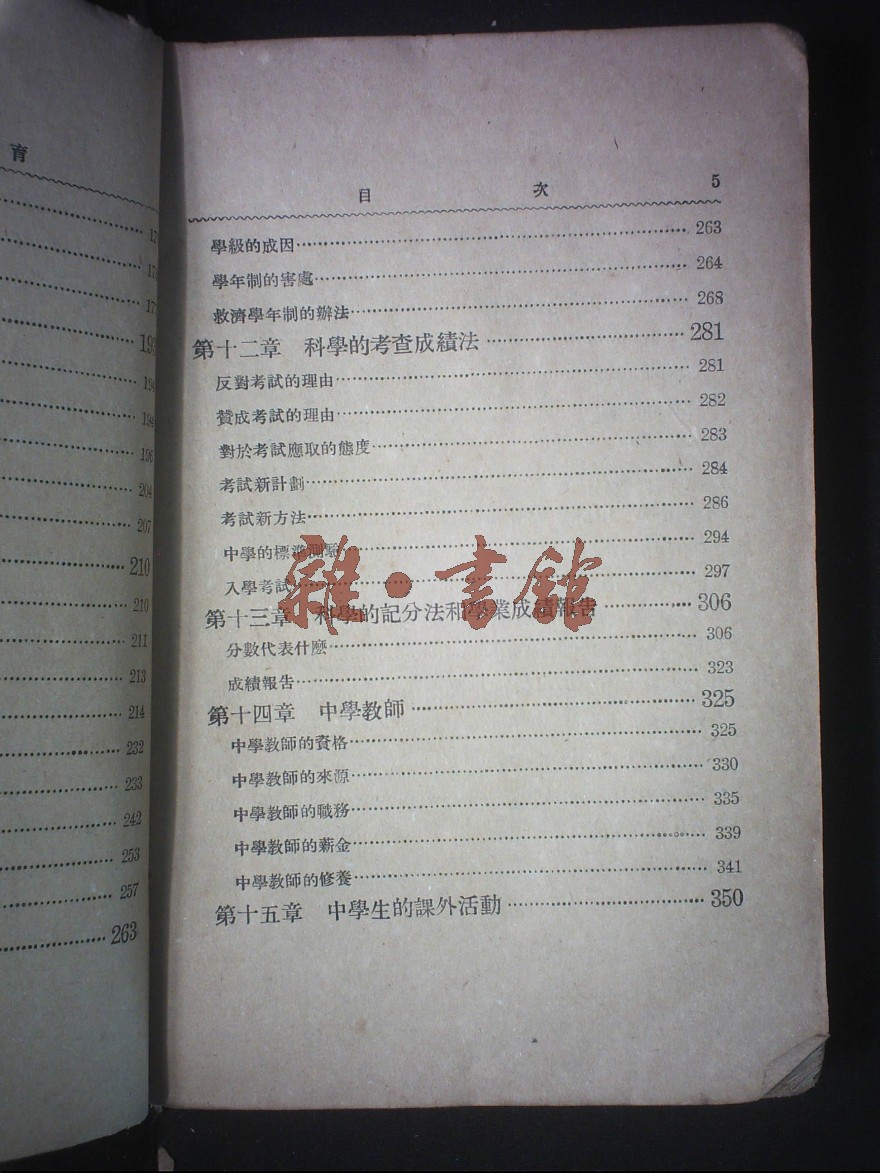 育
193
194
199
196
204
207
210
210
211
213
214
232
233
242
253
257
263
目 次 5
學級的成因 263
學年制的害處 264
救濟學年制的辦法 268
第十二章 科學的考查成績法 281
反對考試的理由 281
贊成考試的理由 282
對於考試應取的態度 283
考試新計劃 284
考試新方法 286
中學的標準測驗 294
入學考試 297
第十三章 科學的記分法和學業成績報告 306
分數代表什麼 306
成績報告 323
第十四章 中學教師 325
中學教師的資格 325
中學教師的來源 330
中學教師的職務 335
中學教師的薪金 339
中學教師的修養 341
第十五章 中學生的課外活動 350
雜·書館